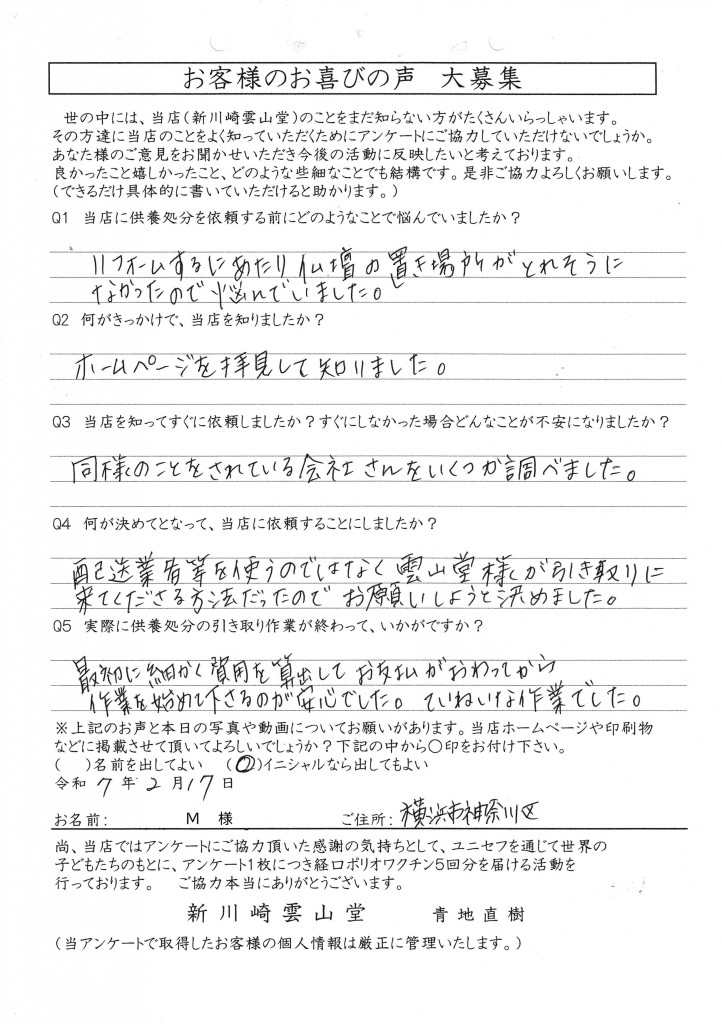 お客様のお喜びの声　大募集
世の中には、当店（新川崎雲山堂）のことをまだ知らない方がたくさんいらっしゃいます。
その方達に当店のことをよく知っていただくためにアンケートにご協力していただけないでしょうか。
あなた様のご意見をお聞かせいただき今後の活動に反映したいと考えております。
良かったこと嬉しかったこと、どのような些細なことでも結構です。是非ご協力よろしくお願いします。
（できるだけ具体的に書いていただけると助かります。）
Q1　当店に供養処分を依頼する前にどのようなことで悩んでいましたか？
リフォームするにあたり仏壇の置き場所がとれそうに
なかったので悩んでいました。
Q2　何がきっかけで、当店を知りましたか？
ホームページを拝見して知りました。
Q3　当店を知ってすぐに依頼しましたか？すぐにしなかった場合どんなことが不安になりましたか？
同様のことをされている会社さんをいくつか調べました。
Q4　何が決めてとなって、当店に依頼することにしましたか？
配送業者等を使うのではなく雲山堂様が引き取りに
来てくださる方法だったのでお願いしようと決めました。
Q5　実際に供養処分の引き取り作業が終わって、いかがですか？
最初に細かく費用を算出してお支払がおわってから
作業を始めて下さるのが安心でした。ていねいな作業でした。
※上記のお声と本日の写真や動画についてお願いがあります。当店ホームページや印刷物
などに掲載させて頂いてよろしいでしょうか？下記の中から〇印をお付け下さい。
（　）名前を出してよい　（〇）イニシャルなら出してもよい
令和 7 年 2 月 17 日
お名前：　M 様　ご住所：横浜市神奈川区
尚、当店ではアンケートにご協力頂いた感謝の気持ちとして、ユニセフを通じて世界の
子どもたちのもとに、アンケート1枚につき経口ポリオワクチン5回分を届ける活動を
行っております。　ご協力本当にありがとうございます。
新川崎雲山堂　青地直樹
（当アンケートで取得したお客様の個人情報は厳正に管理いたします。）